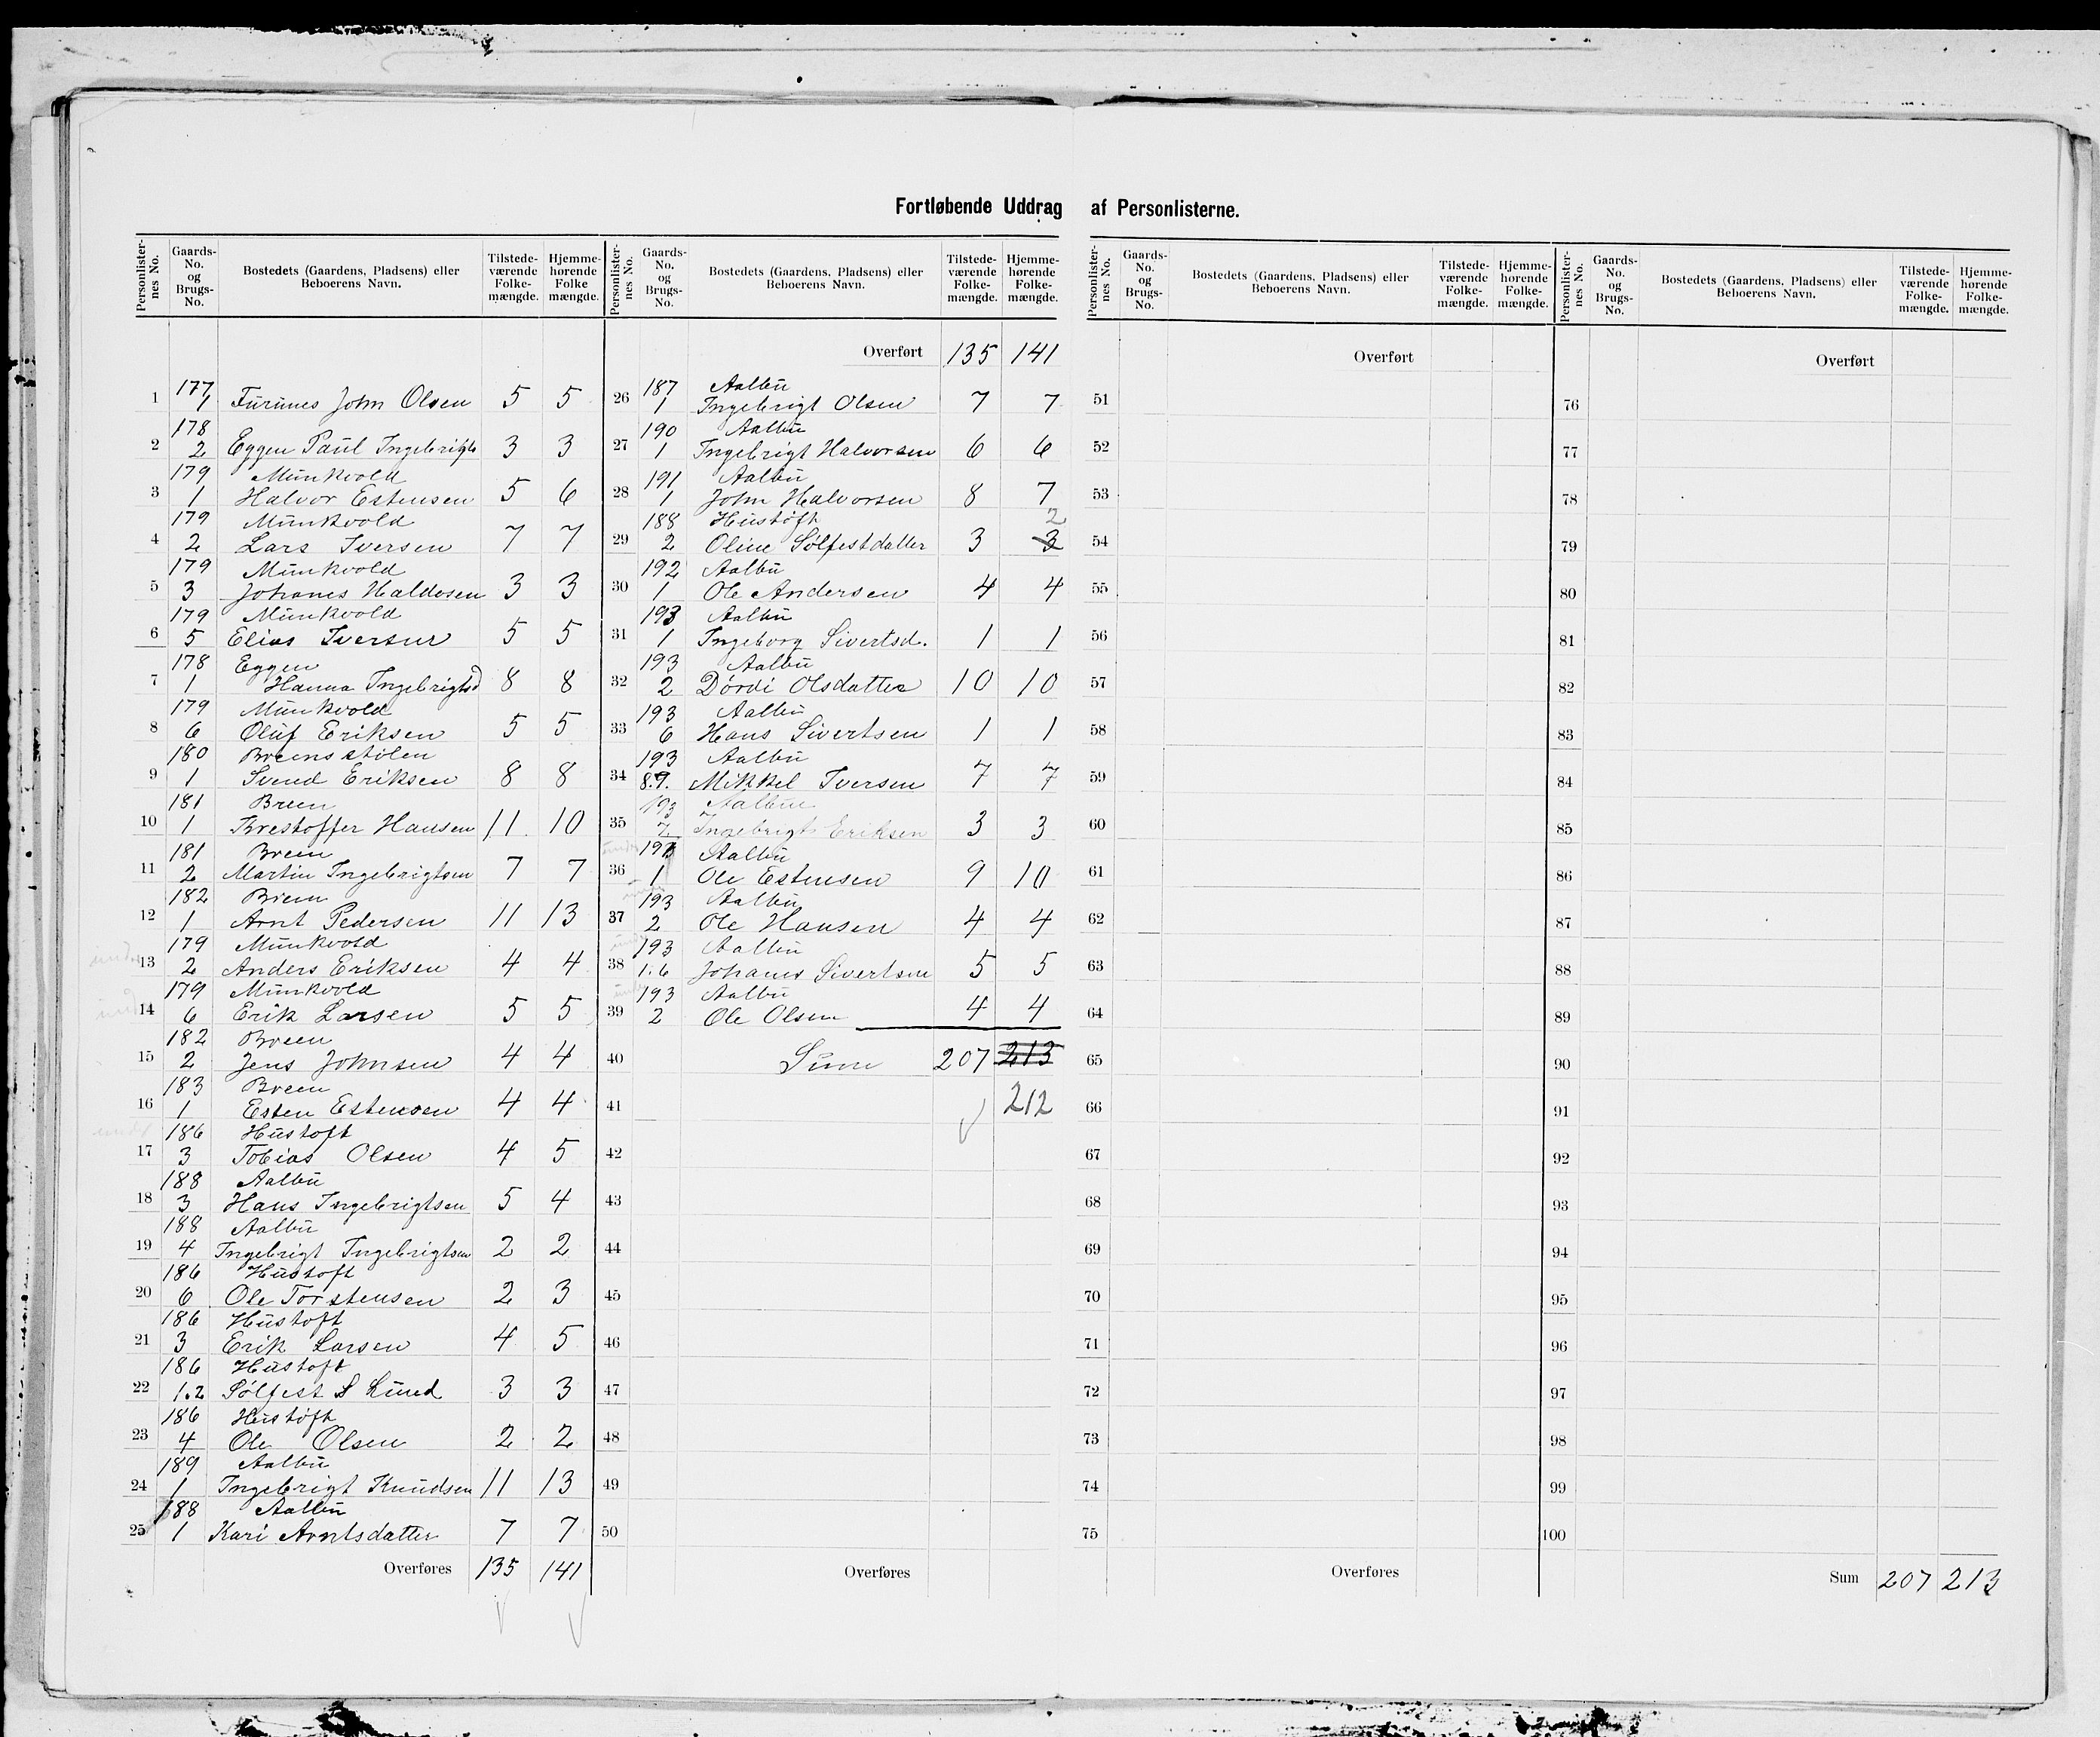 Fortløbende Uddrag af Personlisterne.
Personlisternes No. Gaards-No. og Brugs-No. Bostedets (Gaardens, Pladsens) eller Beboerens Navn. Tilstedeværende Folkemængde. Hjemmehørende Folkemængde.
1 177 1 Furunes John Olsen 5 5
2 178 2 Eggen Paul Ingebrigts 3 3
3 179 1 Munkvold Halvor Estensen 5 6
4 179 2 Munkvold Lars Iversen 7 7
5 179 3 Munkvold Johanes Haldosen 3 3
6 179 5 Munkvold Elias Iversen 5 5
7 178 1 Eggen Hanna Ingebrigtsd 8 8
8 179 6 Munkvold Oluf Eriksen 5 5
9 180 1 Breensstølen Svend Eriksen 8 8
10 181 1 Breen Krestoffer Hansen 11 10
11 181 2 Breen Martin Ingebrigtsen 7 7
12 182 1 Breen Arnt Pedersen 11 13
under 13 179 2 Munkvold Anders Eriksen 4 4
under 14 179 6 Munkvold Erik Larsen 5 5
15 182 2 Breen Jens Johnsen 4 4
16 183 1 Breen Esten Estensen 4 4
under 17 186 3 Hustoft Tobias Olsen 4 5
18 188 3 Aalbu Hans Ingebrigtsen 5 4
19 188 4 Aalbu Ingebrigt Ingebrigtsen 2 2
20 186 6 Hustoft Ole Torstensen 2 3
21 186 3 Hustoft Erik Larsen 4 5
22 186 1.2 Hustoft Sølfest S Lund 3 3
23 186 4 Hustoft Ole Olsen 2 2
24 189 1 Aalbu Ingebrigt Knudsen 11 13
25 188 1 Aalbu Kari Arntsdatter 7 7
Overføres 135 141
Personlisternes No. Gaards-No. og Brugs-No. Bostedets (Gaardens, Pladsens) eller Beboerens Navn. Tilstedeværende Folkemængde. Hjemmehørende Folkemængde.
Overført 135 141
26 187 1 Aalbu Ingebrigt Olsen 7 7
27 190 1 Aalbu Ingebrigt Halvorsen 6 6
28 191 1 Aalbu John Halvorsen 8 7
29 188 2 Hustoft Oline Sølfestdatter 3 3 2
30 192 1 Aalbu Ole Andersen 4 4
31 193 1 Aalbu Ingeborg Sivertsd. 1 1
32 193 2 Aalbu Dordi Olsdatter 10 10
33 193 6 Aalbu Hans Sivertsen 1 1
34 193 8.9. Aalbu Mikkel Iversen 7 7
35 193 7 Aalbu Ingebrigt Eriksen 3 3
under 36 193 1 Aalbu Ole Estensen 9 10
under 37 193 2 Aalbu Ole Hansen 4 4
under 38 193 1.6 Aalbu Johans Sivertsen 5 5
under 39 193 2 Aalbu Ole Olsen 4 4
40 Sum 207 213
41 212
42
43
44
45
46
47
48
49
50
Overføres
Personlisternes No. Gaards-No. og Brugs-No. Bostedets (Gaardens, Pladsens) eller Beboerens Navn. Tilstedeværende Folkemængde. Hjemmehørende Folkemængde.
Overført
51
52
53
54
55
56
57
58
59
60
61
62
63
64
65
66
67
68
69
70
71
72
73
74
75
Overføres
Personlisternes No. Gaards-No. og Brugs-No. Bostedets (Gaardens, Pladsens) eller Beboerens Navn. Tilstedeværende Folkemængde. Hjemmehørende Folkemængde.
Overført
76
77
78
79
80
81
82
83
84
85
86
87
88
89
90
91
92
93
94
95
96
97
98
99
100
Sum 207 213